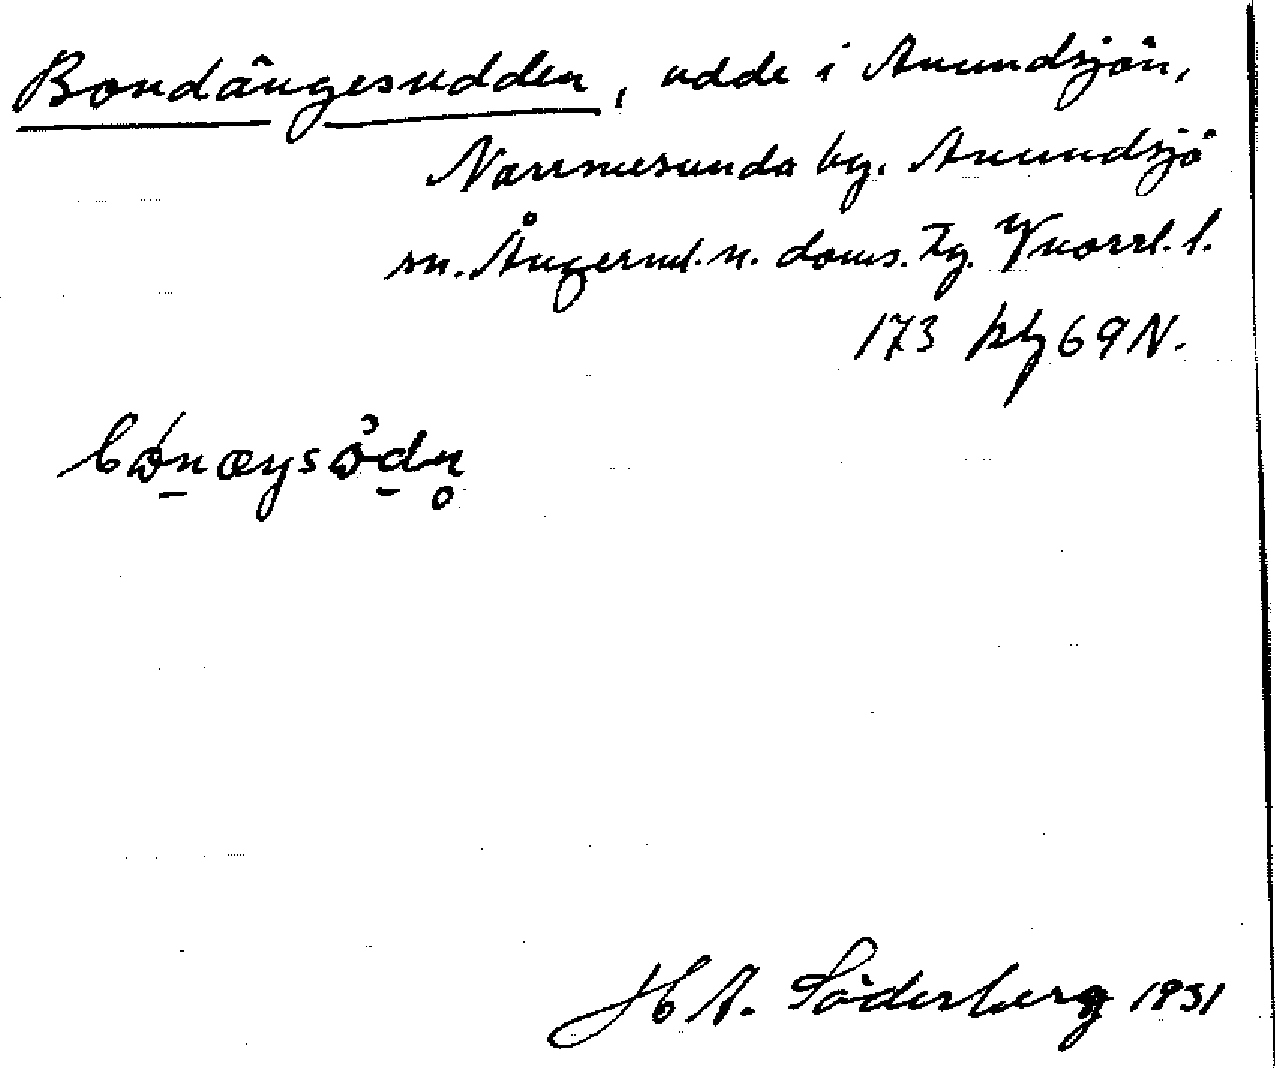 Bondängesudden, udde i Anundsjön,
Norrmesunda by. Anundsjö
sn. Ångerml. n. doms. Tg. Vnorrl. l.
173 kbj 69 N.
H A. Söderberg 1931